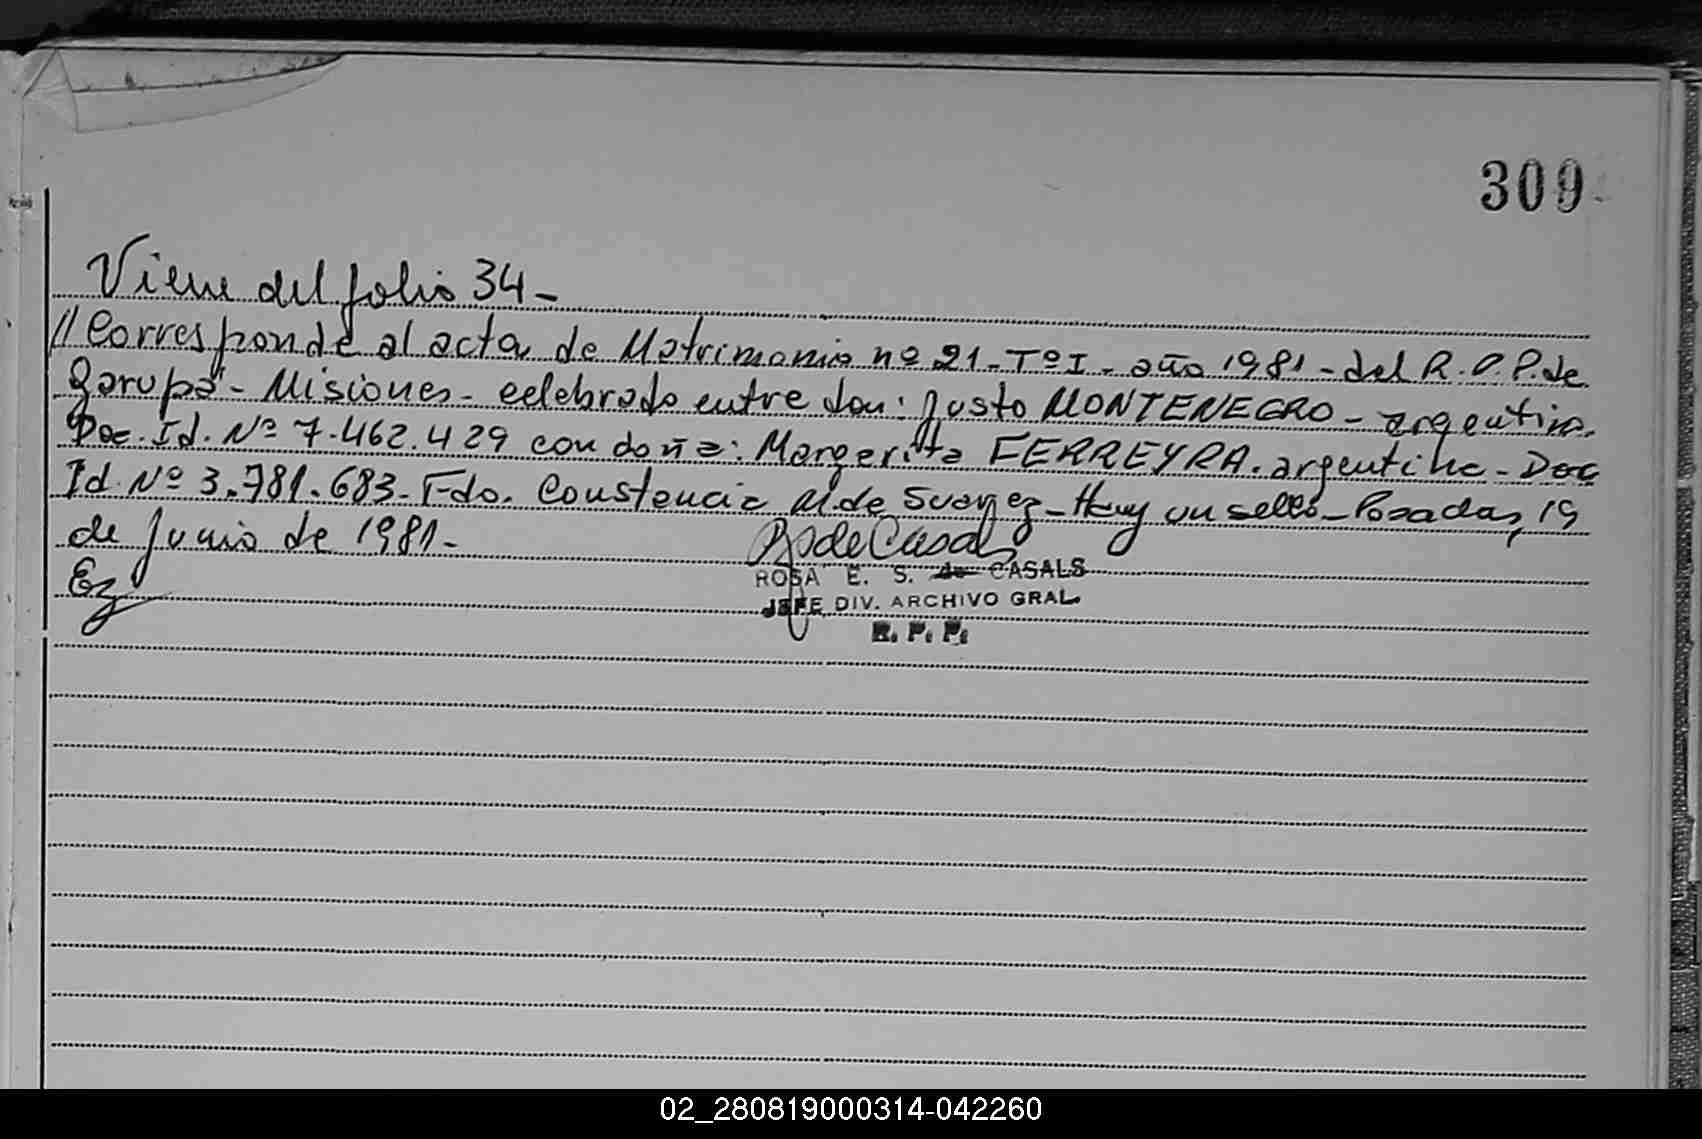 309
Viene del folio 34-
//Corresponde al acta de Matrimonio nº 21-Tº I- año 1981-del R.P.P. de
Garupá- Misiones- celebrado entre don: Justo MONTENEGRO- argentino.
Doc. Id. Nº 7.462.429 con doña: Margarita FERREYRA. argentina- Doc
Id. Nº 3.781.683- Fdo. Constancia A. de Suarez- Hay un sello- Posadas, 19
de Junio de 1981.-
ROSA E. S. de CASALS
JEFE DIV. ARCHIVO GRAL.
R. P. P.
02_280819000314-042260